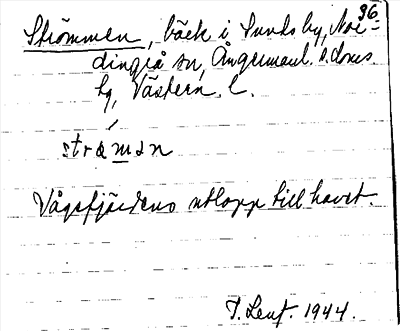 96.
Strömmen, bäck i Sunds by, Nor-
dingrå sn, Ångermanl. s. doms.
hg, Västern. l.
stramən
Vågsfjärdens utlopp till havet.
1944.